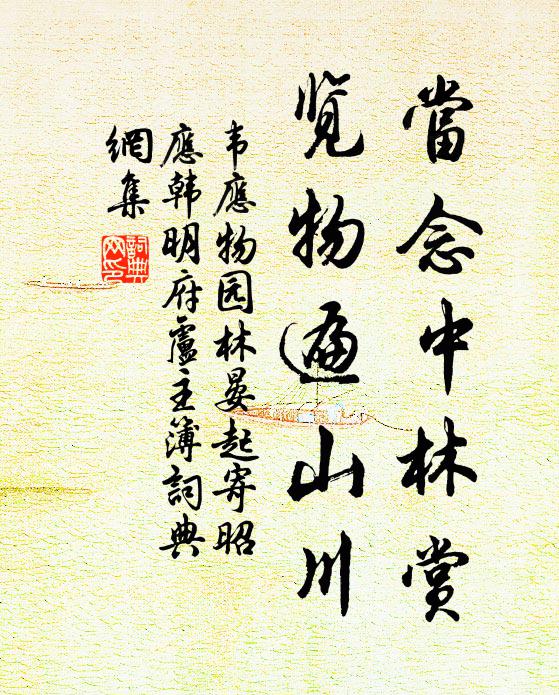 當念中林賞
览物遍山川
韦應物园林晏起寄昭
應韩明府盧主簿詞典
網集
詞典
网印